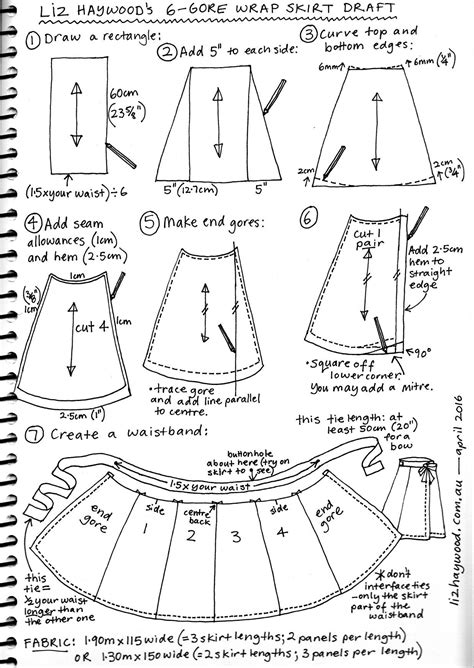 Liz Haywood's 6-Gore Wrap Skirt Draft
① Draw a rectangle:
60cm
(23 5/8")
(1.5x your waist) ÷ 6
② Add 5" to each side:
5" (12.7cm)
5"
③ Curve top and
bottom edges:
6mm
6mm (1/4")
2cm
2cm
(3/4")
④ Add seam
allowances (1cm)
and hem (2.5cm)
1cm
(3/8")
1cm
1cm
cut 4
2.5cm (1")
⑤ Make end gores:
• trace gore
and add line parallel
to centre.
⑥
cut 1
pair
Add 2.5cm
hem to
straight
edge
90°
• Square off
lower corner.
You may add a mitre.
⑦ Create a waistband:
this tie length: at
least 50cm (20")
for a
bow
buttonhole
about here (try on
skirt to see)
1.5x your waist
end
gore
side
1
centre
back
2
3
side
4
end
gore
this
tie =
1/2 your waist
longer than
the other one
* don't
interface ties
- only the skirt
part of the
waistband
lizhaywood.com.au — april 2016
FABRIC: 1.90m x 115 wide (= 3 skirt lengths; 2 panels per length)
OR 1.30m x 150 wide (= 2 skirt lengths; 3 panels per length)